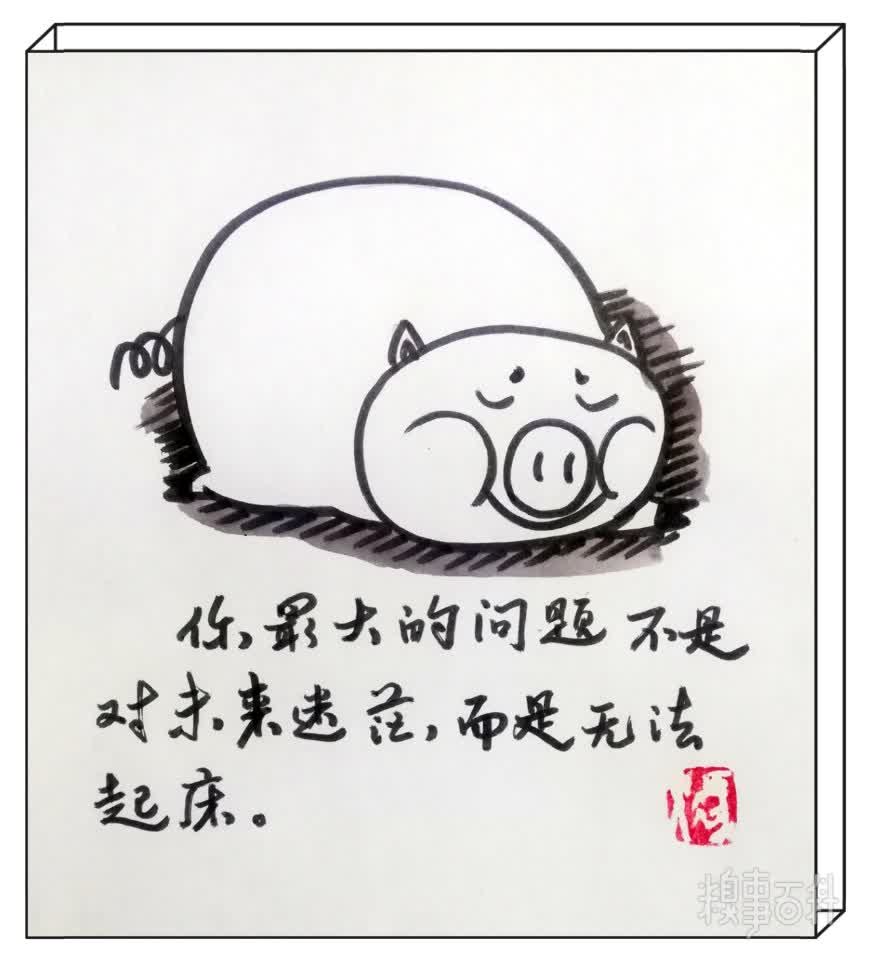 你最大的问题不是
对未来迷茫,而是无法
起床。
糗事百科